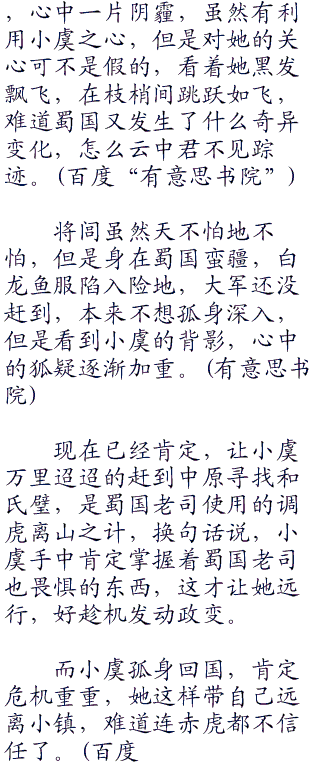 ，心中一片阴霾，虽然有利
用小虞之心，但是对她的关
心可不是假的，看着她黑发
飘飞，在枝梢间跳跃如飞，
难道蜀国又发生了什么奇异
变化，怎么云中君不见踪
迹。(百度“有意思书院”)
将闾虽然天不怕地不
怕，但是身在蜀国蛮疆，白
龙鱼服陷入险地，大军还没
赶到，本来不想孤身深入，
但是看到小虞的背影，心中
的狐疑逐渐加重。(有意思书
院)
现在已经肯定，让小虞
万里迢迢的赶到中原寻找和
氏璧，是蜀国老司使用的调
虎离山之计，换句话说，小
虞手中肯定掌握着蜀国老司
也畏惧的东西，这才让她远
行，好趁机发动政变。
而小虞孤身回国，肯定
危机重重，她这样带自己远
离小镇，难道连赤虎都不信
任了。(百度